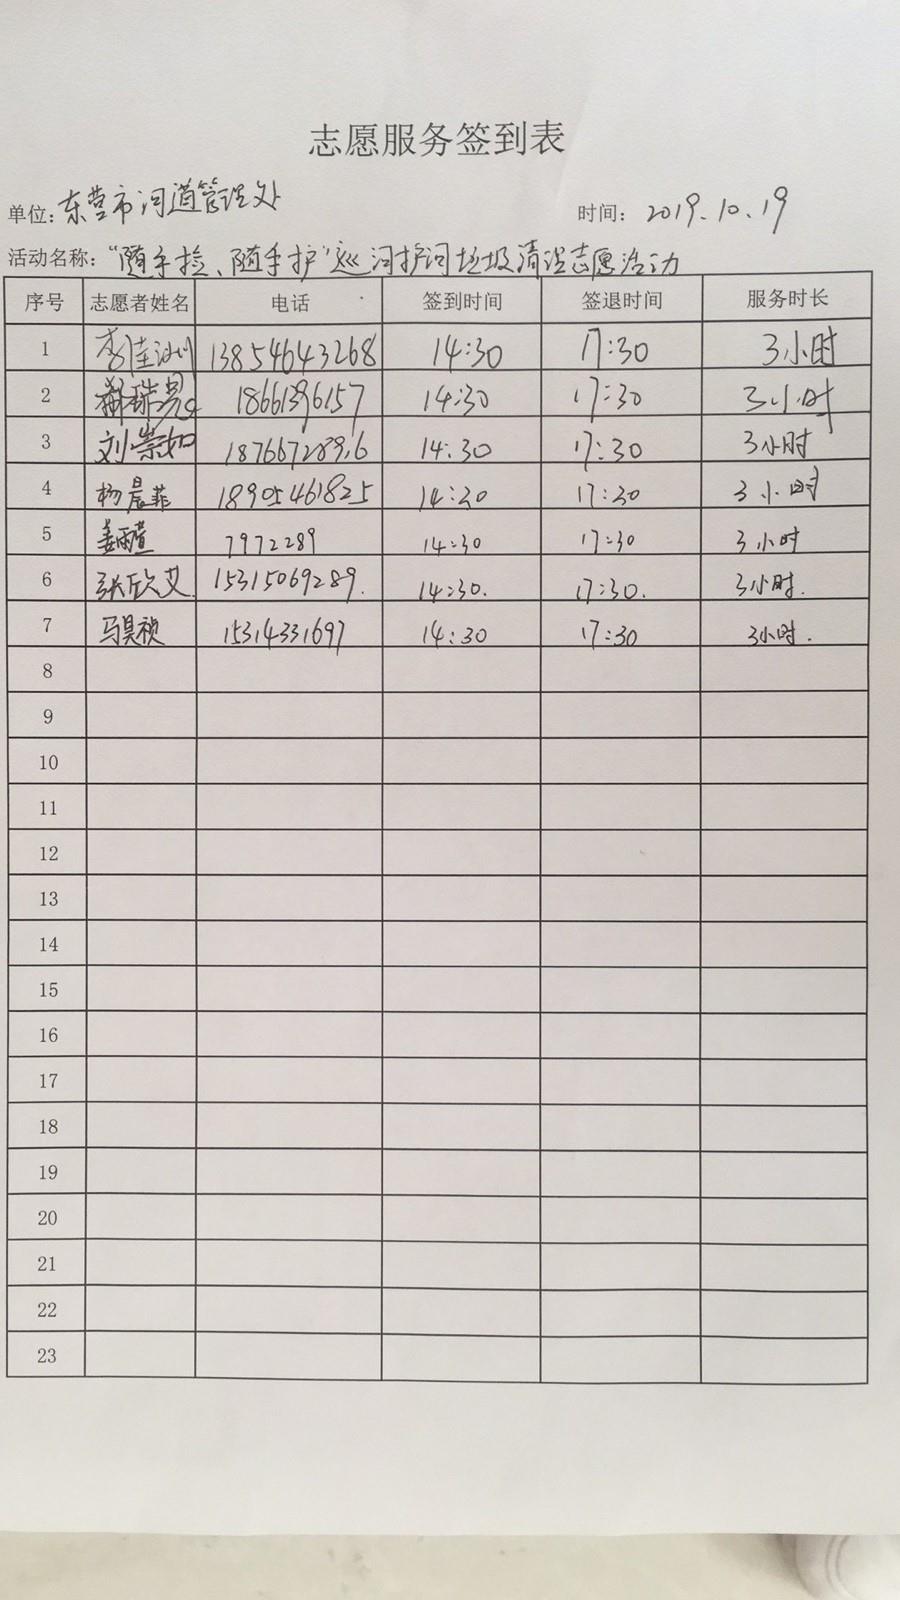 志愿服务签到表
单位：东营市河道管理处 时间：2019.10.19
活动名称：“随手捡、随手护”巡河护河垃圾清理志愿活动
序号 志愿者姓名 电话 签到时间 签退时间 服务时长
1 李佳 13854643268 14:30 17:30 3小时
2 18661396157 14:30 17:30 3小时
3 刘崇如 14:30 17:30 3小时
4 杨晨菲 18905461825 14:30 17:30 3小时
5 姜雨萱 7972289 14:30 17:30 3小时
6 张欣艾 15315069289. 14:30. 17:30. 3小时.
7 马昊祯 15314331697 14:30 17:30 3小时.
8
9
10
11
12
13
14
15
16
17
18
19
20
21
22
23